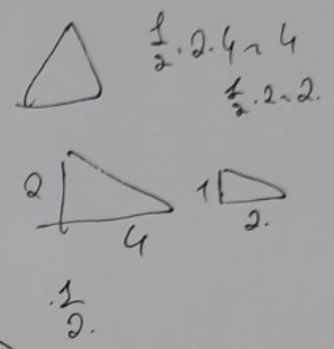 1/2 · 2 · 4 ~ 4
1/2 · 2 ~ 2.
2
4
1
2.
· 1/2.